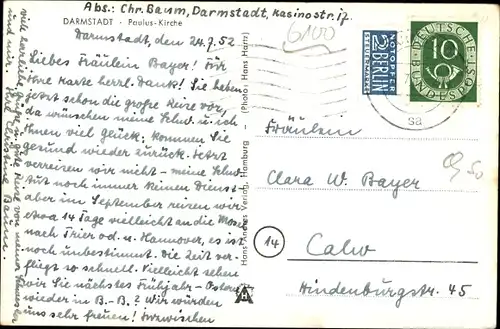 Abs.: Chr. Baum, Darmstadt, Kasinostr. 17
DARMSTADT - Paulus-Kirche
Darmstadt, den 24.7.52
Liebes Fräulein Bayer! Für
Ihre Karte herzl. Dank! Sie haben
jetzt schon die große Reise vor,
da wünschen meine Schw. u. ich
Ihnen viel Glück; kommen Sie
gesund wieder zurück. Jetzt
verreisen wir nicht - meine Schw.
tut noch immer keinen Dienst -
aber im September reisen wir
etwa 14 Tage vielleicht an die Mosel
nach Trier od. n. Hannover, es ist
noch unbestimmt. Die Zeit ver-
fliegt so schnell. Vielleicht sehen
wir Sie nächstes Frühjahr - Ostern
wieder in B.-B.? Wir würden
uns sehr freuen! Inzwischen
viele herzliche Grüße u. gute Reise von meiner Schwester
und mir. Ihre Christine Baum.
(Photo: Hans Hartz)
Hans Andres Verlag, Hamburg
6100
NOTOPFER
2 BERLIN
STEUERMARKE
DEUTSCHE BUNDESPOST
10
sa
Fräulein
Clara W. Bayer
14
Calw
Hindenburgstr. 45